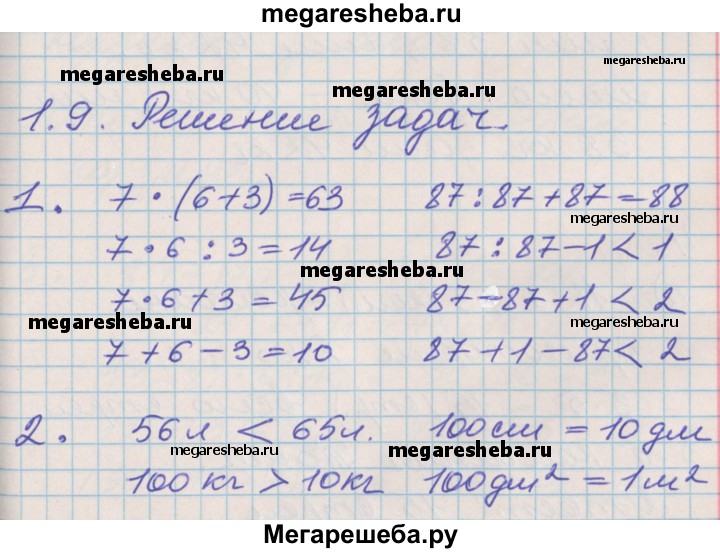 megaresheba.ru
megaresheba.ru
megaresheba.ru
megaresheba.ru
1.9. Решение задач.
1. 7 · (6+3) = 63 87 : 87 + 87 = 88
megaresheba.ru
7 · 6 : 3 = 14 87 : 87 - 1 < 1
megaresheba.ru
7 · 6 + 3 = 45 87 - 87 + 1 < 2
megaresheba.ru
megaresheba.ru
7 + 6 - 3 = 10 87 + 1 - 87 < 2
2. 56 л < 65 л. 100 см = 10 дм
megaresheba.ru
megaresheba.ru
100 кг > 10 кг 100 дм² = 1 м²
Мегарешеба.ру